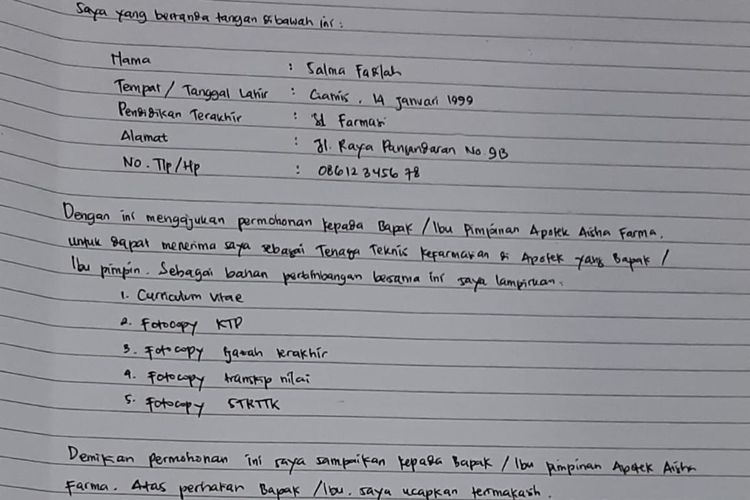 Saya yang bertanda tangan dibawah ini :
Nama : Salma Fadlah
Tempat / Tanggal Lahir : Ciamis, 14 Januari 1999
Pendidikan Terakhir : S1 Farmasi
Alamat : Jl. Raya Pangandaran No. 9B
No. Tlp / Hp : 086123456 78
Dengan ini mengajukan permohonan kepada Bapak / Ibu Pimpinan Apotek Aisha Farma,
untuk dapat menerima saya sebagai Tenaga Teknis Kefarmasian di Apotek yang Bapak /
Ibu pimpin. Sebagai bahan pertimbangan bersama ini saya lampirkan.
1. Curriculum Vitae
2. Fotocopy KTP
3. Fotocopy Ijazah terakhir
4. Fotocopy transkip nilai
5. Fotocopy STRTTK
Demikian Permohonan ini saya sampaikan kepada Bapak / Ibu pimpinan Apotek Aisha
Farma. Atas perhatian Bapak / Ibu. saya ucapkan terimakasih.